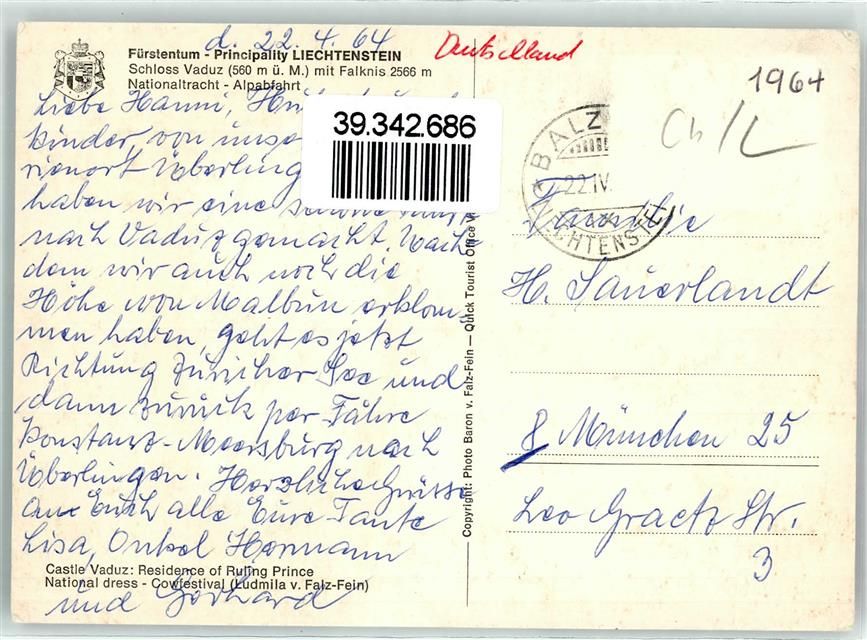 d. 22.4.64
Deutschland
Fürstentum - Principality LIECHTENSTEIN
Schloss Vaduz (560 m ü. M.) mit Falknis 2566 m
Nationaltracht - Alpabfahrt
Liebe Hanni,
Kinder, von
Überling
haben wir eine schöne
nach Vaduz gemacht. Nach
dem wir auch noch die
Höhe von Malbun erklom-
men haben, geht es jetzt
Richtung Züricher See und
dann zurück per Fähre
Konstanz-Meersburg nach
Überlingen. Herzliche Grüsse
an Euch alle Eure Tante
Lisa, Onkel Hermann
und Gerhard
Castle Vaduz: Residence of Ruling Prince
National dress - Cowfestival (Ludmila v. Falz-Fein)
39.342.686
Copyright: Photo Baron v. Falz-Fein — Quick Tourist Office
1964
Ch/L
BALZ
22.IV.
CHTENSTE
Familie
H. Sauerlandt
8 München 25
Leo Graetz Str.
3